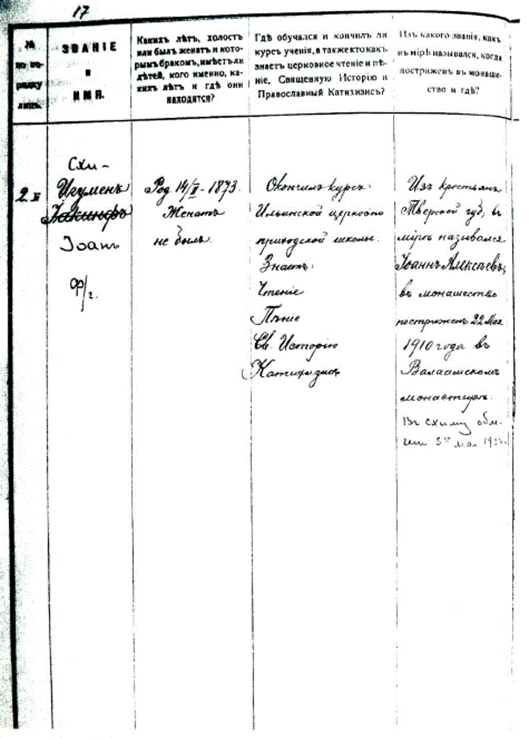 17
№
по по-
рядку
лицъ.
ЗВАНІЕ
и
ИМЯ.
Какихъ лѣтъ, холостъ
или былъ женатъ и кото-
рымъ бракомъ, имѣетъ ли
дѣтей, кого именно, ка-
кихъ лѣтъ и гдѣ они
находятся?
Гдѣ обучался и кончилъ ли
курсъ ученія, а также то какъ
знаетъ церковное чтеніе и пѣ-
ніе, Священную Исторію и
Православный Катихизисъ?
Изъ какого званія, какъ
въ мірѣ назывался, когда
постриженъ въ монаше-
ство и гдѣ?
2.
Схи-
Игуменъ
Іакинфъ
Іоанъ
ф/г.
Род 14/II - 1873.
Женатъ
не былъ
Окончилъ курсъ
Ильинской церковно
приходской школы.
Знаетъ:
Чтеніе
Пѣніе
Св. Исторію
Катихизисъ
Изъ крестьянъ
Тверской губ, въ
мірѣ назывался
Іоаннъ Алексѣевъ,
въ монашество
постриженъ 22 Мая
1910 года въ
Валаамскомъ
монастырѣ.
Въ схиму обле-
мая